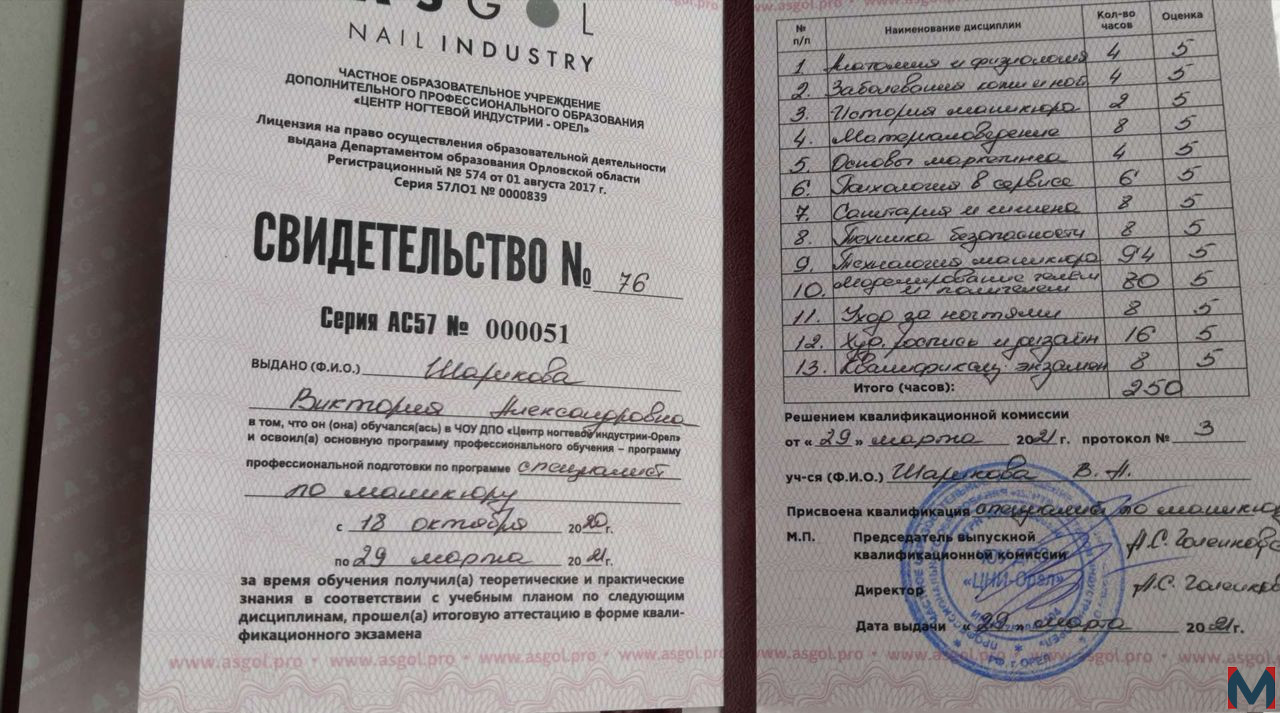 ASGOL
NAIL INDUSTRY
ЧАСТНОЕ ОБРАЗОВАТЕЛЬНОЕ УЧРЕЖДЕНИЕ
ДОПОЛНИТЕЛЬНОГО ПРОФЕССИОНАЛЬНОГО ОБРАЗОВАНИЯ
«ЦЕНТР НОГТЕВОЙ ИНДУСТРИИ - ОРЕЛ»
Лицензия на право осуществления образовательной деятельности
выдана Департаментом образования Орловской области
Регистрационный № 574 от 01 августа 2017 г.
Серия 57ЛО1 № 0000839
СВИДЕТЕЛЬСТВО № 76
Серия АС57 № 000051
ВЫДАНО (Ф.И.О.) Шарикова
Виктория Александровна
в том, что он (она) обучался(ась) в ЧОУ ДПО «Центр ногтевой индустрии-Орел»
и освоил(а) основную программу профессионального обучения – программу
профессиональной подготовки по программе специалист
по маникюру
с 18 октября 2020г.
по 29 марта 2021г.
за время обучения получил(а) теоретические и практические
знания в соответствии с учебным планом по следующим
дисциплинам, прошел(а) итоговую аттестацию в форме квали-
фикационного экзамена
www.asgol.pro • www.asgol.pro • www.asgol.pro • www.asgol.pro
№ п/п Наименование дисциплин Кол-во часов Оценка
1. Анатомия и физиология 4 5
2. Заболевания кожи и ног. 4 5
3. История маникюра 2 5
4. Материаловедение 8 5
5. Основы маркетинга 4 5
6. Психология в сервисе 6 5
7. Санитария и гигиена 8 5
8. Техника безопасности 8 5
9. Технология маникюра 94 5
10. Моделирование гелем
и полигелем 80 5
11. Уход за ногтями 8 5
12. Худ. роспись и дизайн 16 5
13. Квалификац. экзамен 8 5
Итого (часов): 250
Решением квалификационной комиссии
от « 29 » марта 2021г. протокол № 3
уч-ся (Ф.И.О.) Шарикова В. А.
Присвоена квалификация специалист по маникюр
М.П. Председатель выпускной
квалификационной комиссии А.С. Голенков
Директор А.С. Голенков
Дата выдачи « 29 » марта 2021г.
«ЦНИ-Орел»
www.asgol.pro
M